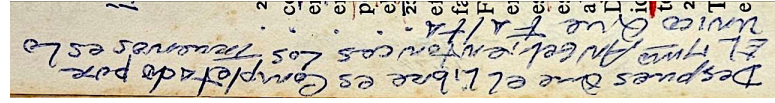 Despues Que el Libro es Completado por
El 7mo Angel, entonces Los Truenos es Lo
unico Que Falta